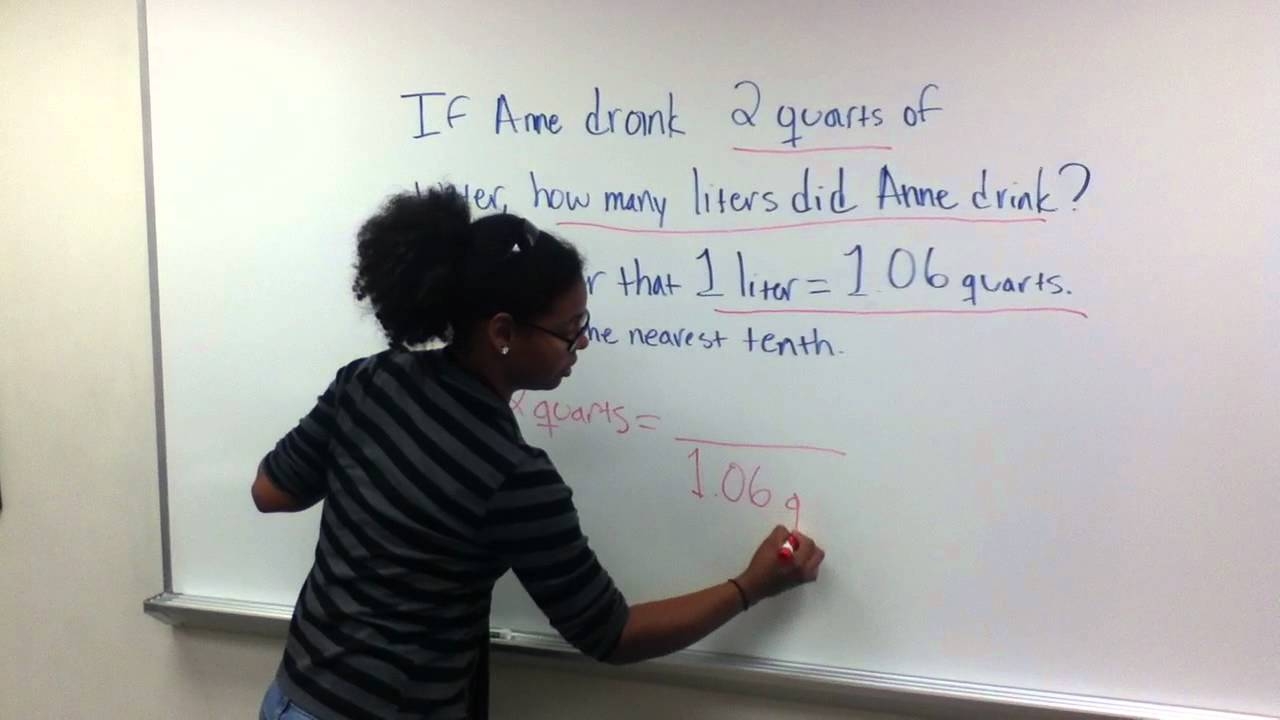 If Anne drank 2 quarts of
how many liters did Anne drink?
that 1 liter = 1.06 quarts.
nearest tenth.
quarts =
1.06 q